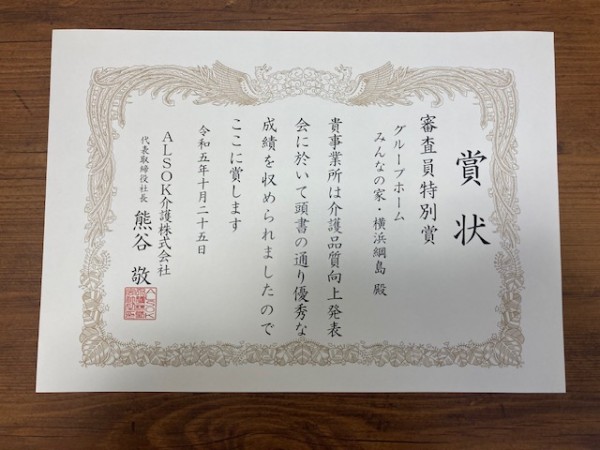 賞状
審査員特別賞
グループホーム
みんなの家・横浜綱島 殿
貴事業所は介護品質向上発表
会に於いて頭書の通り優秀な
成績を収められましたので
ここに賞します
令和五年十月二十五日
ALSOK介護株式会社
代表取締役社長 熊谷 敬